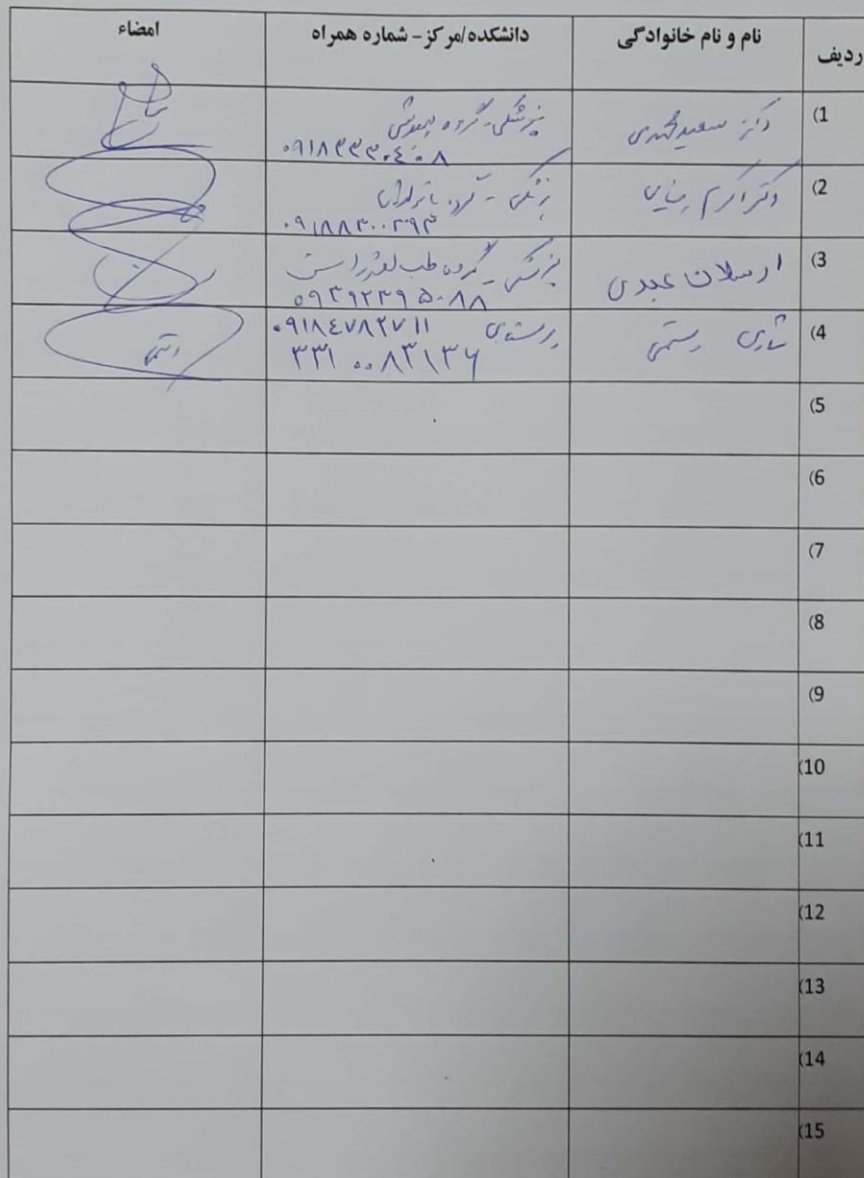 ردیف نام و نام خانوادگی دانشکده/مرکز - شماره همراه امضاء
(1 دکتر سعید محمدی پزشکی - گروه بیهوشی
۰۹۱۸۳۳۳۰۴۰۸
(2 دکتر اکرم پزشکی - گروه
۰۹۱۸۸۳۰۰۲۹۳
(3 ارسلان عبدی پزشکی - گروه طب اورژانس
۰۹۳۹۲۳۹۵۰۸۸
(4 رستمی پرستاری ۰۹۱۸۴۷۸۲۷۱۱
۳۳۱۰۰۸۳۱۳۶
(5
(6
(7
(8
(9
(10
(11
(12
(13
(14
(15